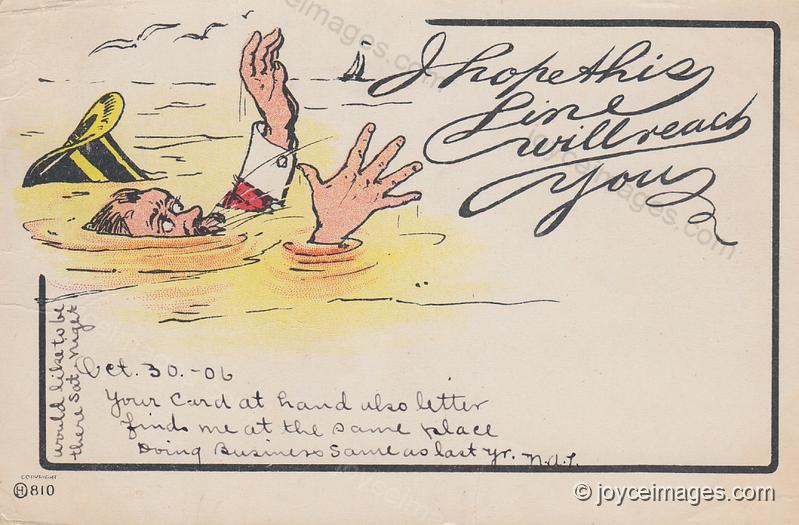 I hope this
Line
will reach
you
would like to be
there Sat. Night
Oct. 30.-06
Your Card at hand also letter
finds me at the same place
Doing Business same as last yr. N.A.L.
COPYRIGHT
H 810
© joyceimages.com